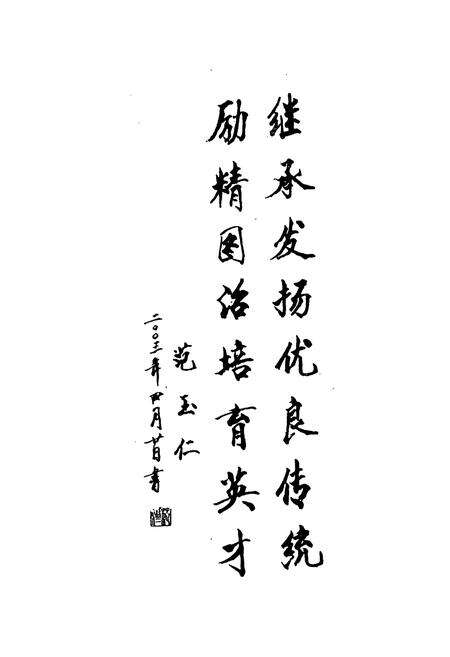 继承发扬优良传统
励精图治培育英才
范玉仁
二〇〇三年四月廿日书